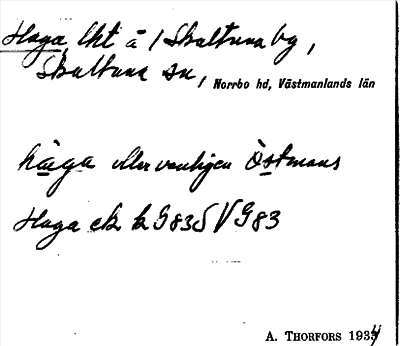 Haga, lht å 1 Skultuna by,
Skultuna sn, Norrbo hd, Västmanlands län
håga eller vanligen Östmans
Haga ek k G 83 S V G 83
A. THORFORS 1934